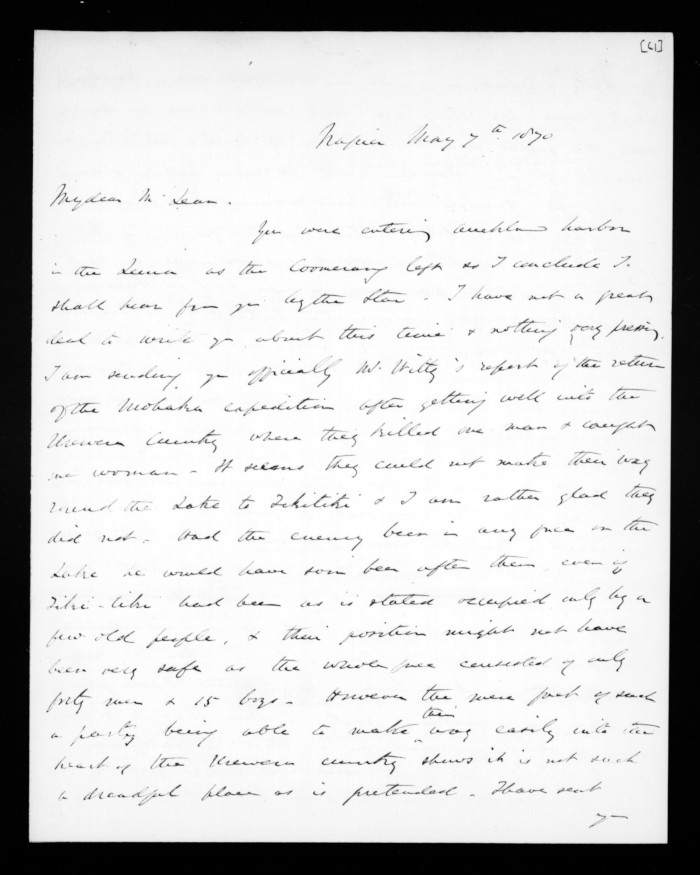 [61]
Napier May 7th 1870
My dear McLean.
You were entering Auckland harbor
in the Luna as the Boomerang left so I conclude I
shall hear from you by the Star. I have not a great
deal to write you about this time & nothing very pressing.
I am sending you officially Mr. Witty's report of the return
of the Mohaka expedition after getting well into the
Urewera Country where they killed one man & caught
one woman - It seems they could not make their way
round the Lake to Tikitiki & I am rather glad they
did not. Had the enemy been in any force on the
Lake he would have soon been after them even if
Tiki-tiki had been as is stated occupied only by a
few old people, & their position might not have
been very safe as the whole force consisted of only
forty men & 15 boys - However the mere fact of such
a party being able to make their way easily into the
heart of the Urewera country shows it is not such
a dreadful place as is pretended. I have sent
you